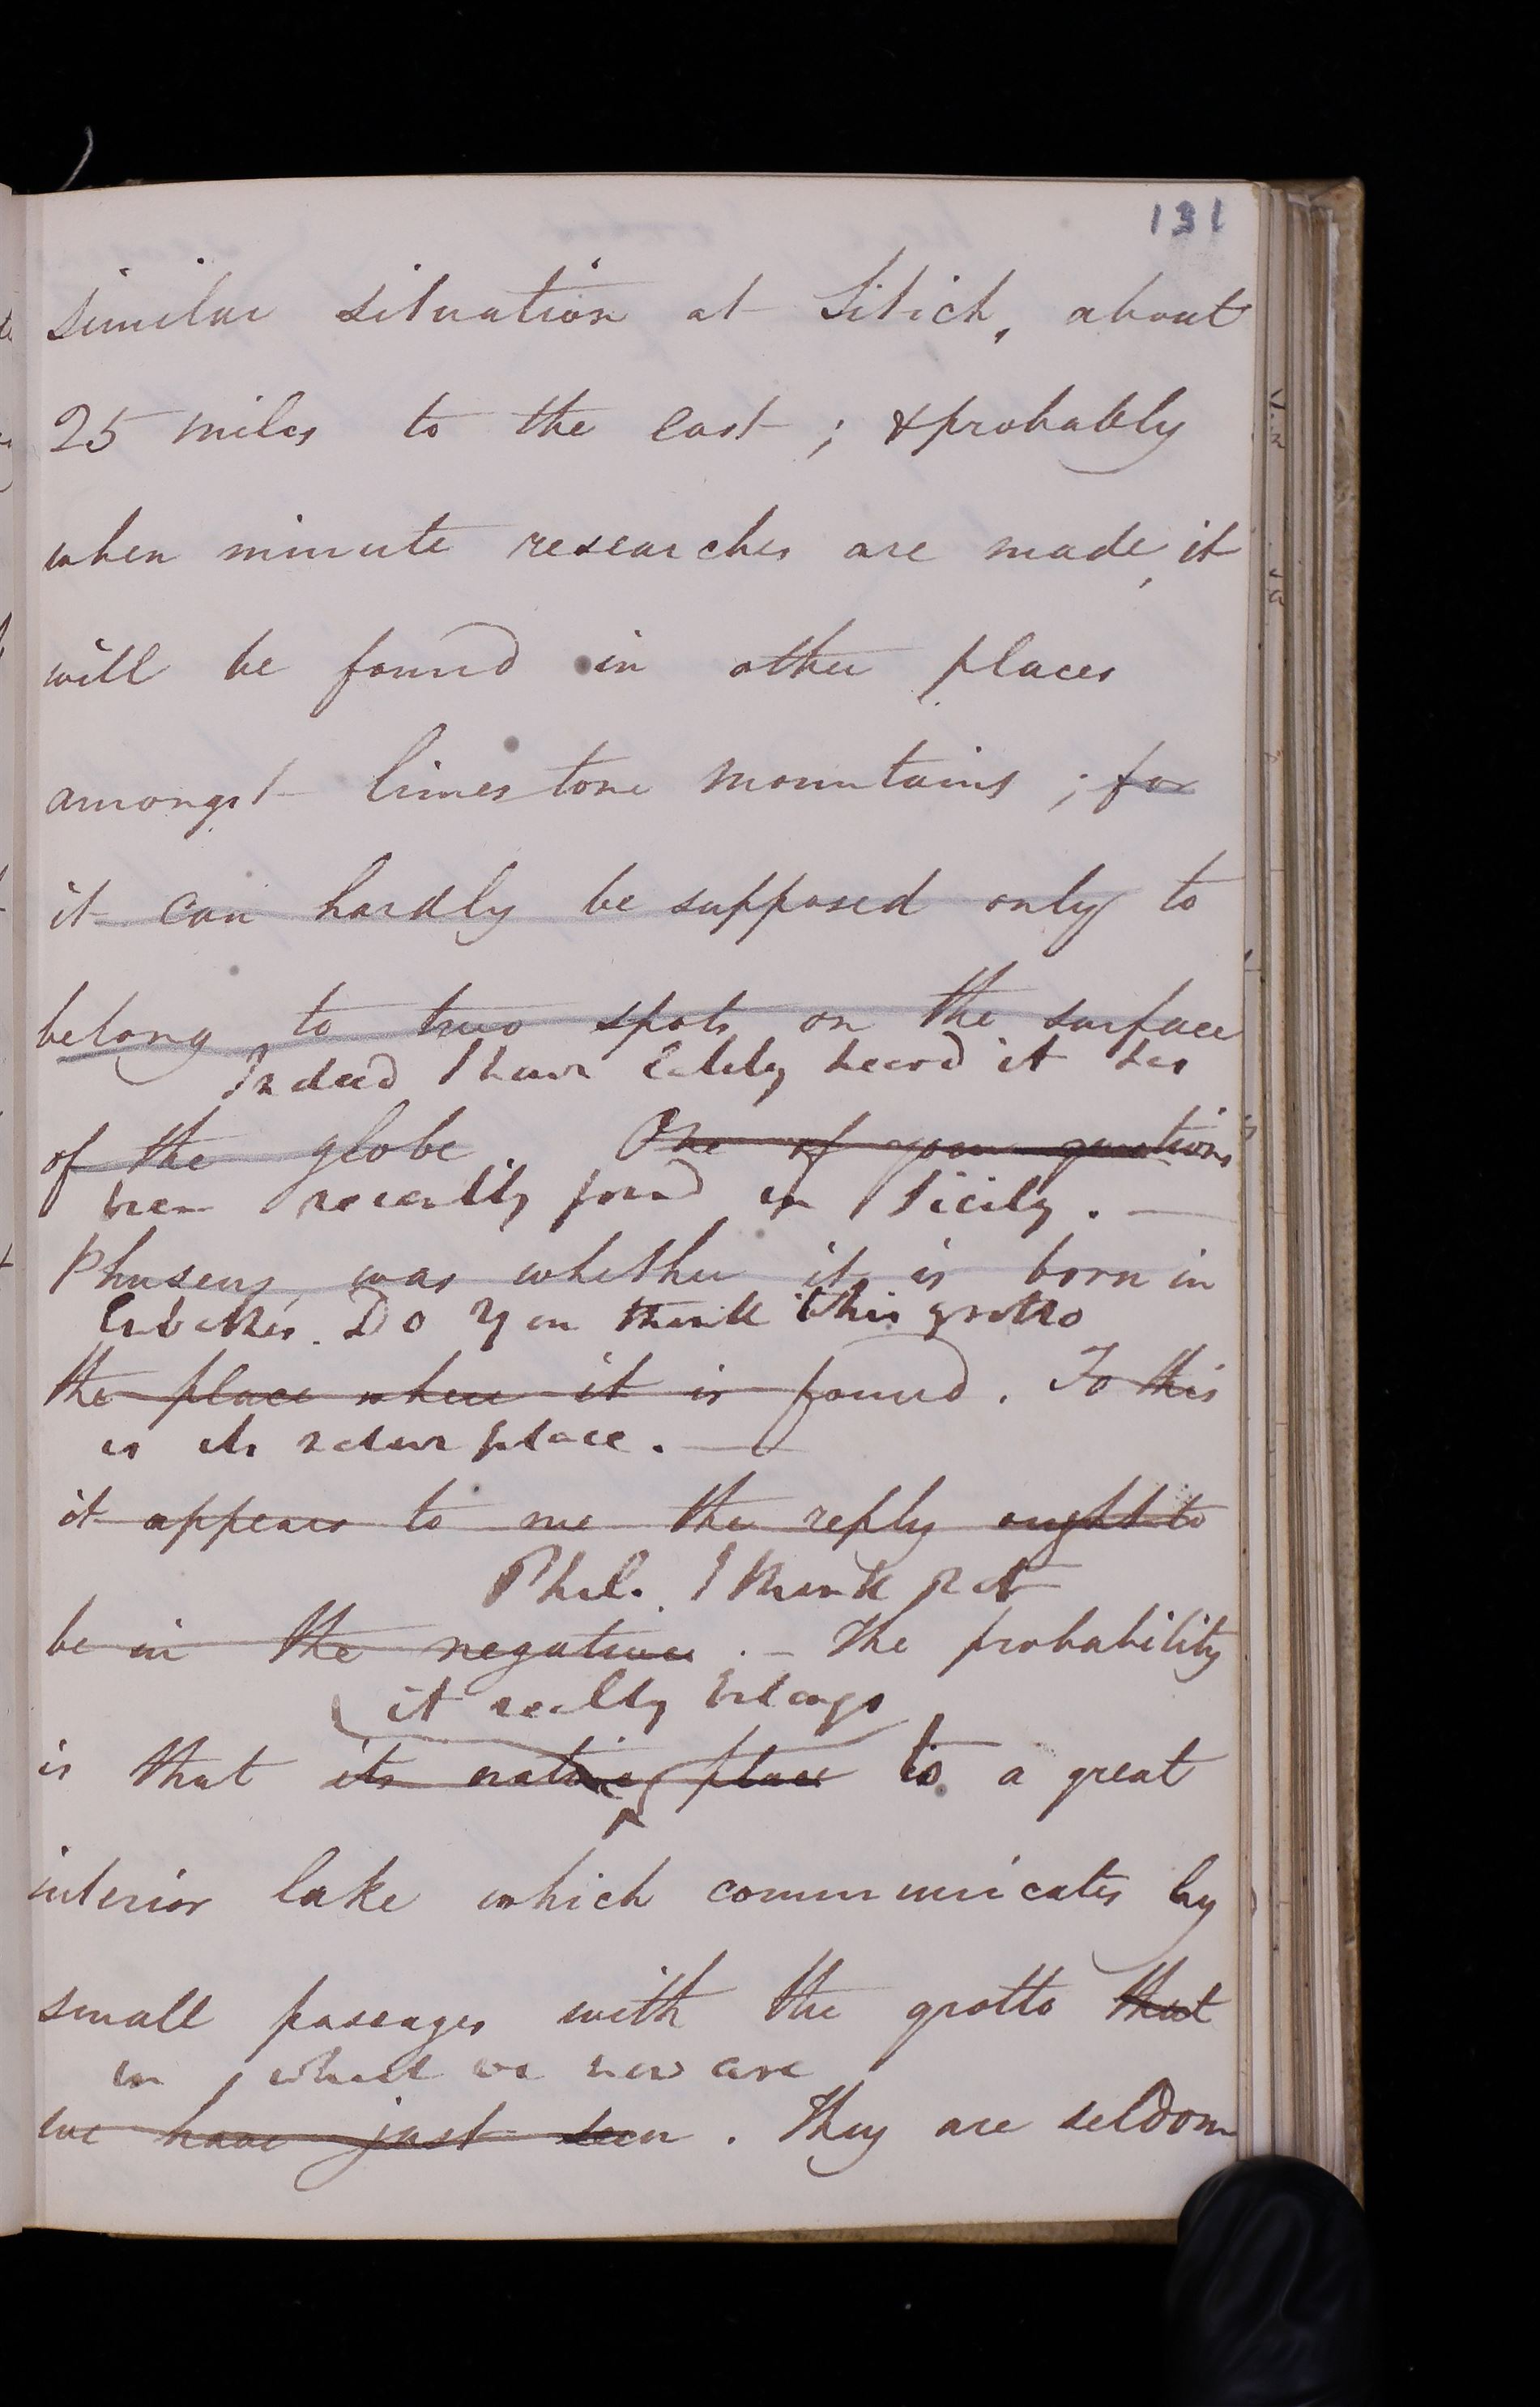 131
similar situation at Sitich, about
25 miles to the east ; & probably
when minute researches are made, it
will be found in other places
amongst limestone mountains ; for
it can hardly be supposed only to
belong to two spots on the surface
Indeed I have lately heard it has
of the globe. One of your questions
been recently found in Sicily. —
Phuseus, was whether it is born in
Do you think this grotto
the place where it is found. To this
is its native place. —
it appears to me the reply ought to
Phil. I think not
be in the negative. – The probability
it really belongs
is that its native place to a great
interior lake which communicates by
small passages with the grotto that
in which we now are
we have just seen . They are seldom